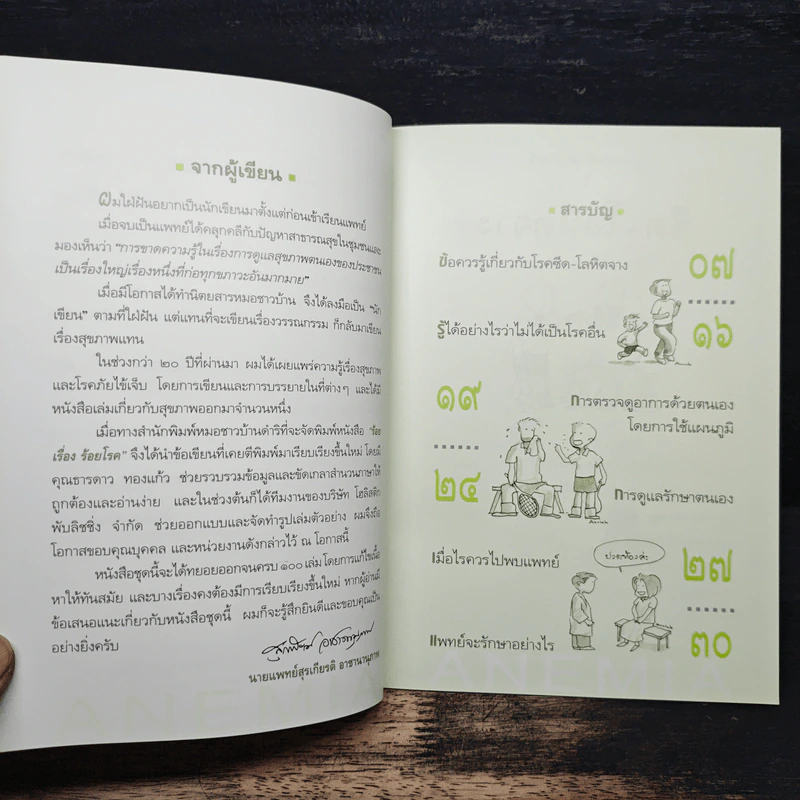 จากผู้เขียน
ผมใฝ่ฝันอยากเป็นนักเขียนมาตั้งแต่ก่อนเข้าเรียนแพทย์
เมื่อจบเป็นแพทย์ได้คลุกคลีกับปัญหาสาธารณสุขในชุมชนและ
มองเห็นว่า “การขาดความรู้ในเรื่องการดูแลสุขภาพตนเองของประชาชน
เป็นเรื่องใหญ่เรื่องหนึ่งที่ก่อทุกขภาวะอันมากมาย”
เมื่อมีโอกาสได้ทำนิตยสารหมอชาวบ้าน จึงได้ลงมือเป็น “นัก
เขียน” ตามที่ใฝ่ฝัน แต่แทนที่จะเขียนเรื่องวรรณกรรม ก็กลับมาเขียน
เรื่องสุขภาพแทน
ในช่วงกว่า ๒๐ ปีที่ผ่านมา ผมได้เผยแพร่ความรู้เรื่องสุขภาพ
และโรคภัยไข้เจ็บ โดยการเขียนและการบรรยายในที่ต่างๆ และได้มี
หนังสือเล่มเกี่ยวกับสุขภาพออกมาจำนวนหนึ่ง
เมื่อทางสำนักพิมพ์หมอชาวบ้านดำริที่จะจัดพิมพ์หนังสือ “ร้อย
เรื่อง ร้อยโรค” จึงได้นำข้อเขียนที่เคยตีพิมพ์มาเรียบเรียงขึ้นใหม่ โดยมี
คุณธารดาว ทองแก้ว ช่วยรวบรวมข้อมูลและขัดเกลาสำนวนภาษาให้
ถูกต้องและอ่านง่าย และในช่วงต้นก็ได้ทีมงานของบริษัท โฮลิสติก
พับลิชชิ่ง จำกัด ช่วยออกแบบและจัดทำรูปเล่มตัวอย่าง ผมจึงถือ
โอกาสขอบคุณบุคคล และหน่วยงานดังกล่าวไว้ ณ โอกาสนี้
หนังสือชุดนี้จะได้ทยอยออกจนครบ ๑๐๐ เล่ม โดยการแก้ไขเนื้อ
หาให้ทันสมัย และบางเรื่องคงต้องมีการเรียบเรียงขึ้นใหม่ หากผู้อ่านมี
ข้อเสนอแนะเกี่ยวกับหนังสือชุดนี้ ผมก็จะรู้สึกยินดีและขอบคุณเป็น
อย่างยิ่งครับ
นายแพทย์สุรเกียรติ อาชานานุภาพ
ANEMIA
สารบัญ
ข้อควรรู้เกี่ยวกับโรคซีด-โลหิตจาง ๐๗
รู้ได้อย่างไรว่าไม่ได้เป็นโรคอื่น ๑๖
๑๙ การตรวจดูอาการด้วยตนเอง
โดยการใช้แผนภูมิ
๒๔ การดูแลรักษาตนเอง
ปวดท้องค่ะ
เมื่อไรควรไปพบแพทย์ ๒๗
แพทย์จะรักษาอย่างไร ๓๐
ANEMIA